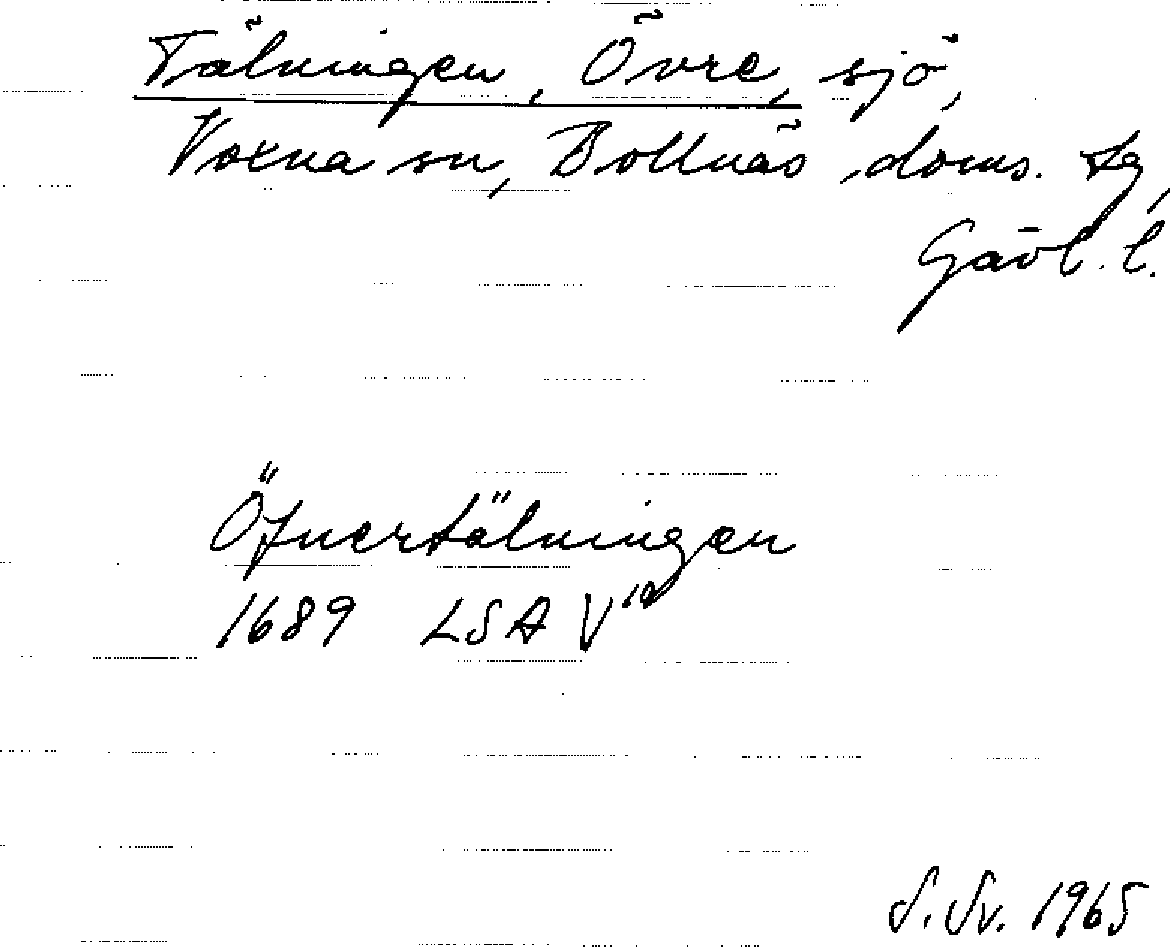 Tälningen, Övre, sjö,
Voxna sn, Bollnäs doms. tg,
Gävl. l.
Öfuertälningen
1689 LSA V 12
S. Sv. 1965